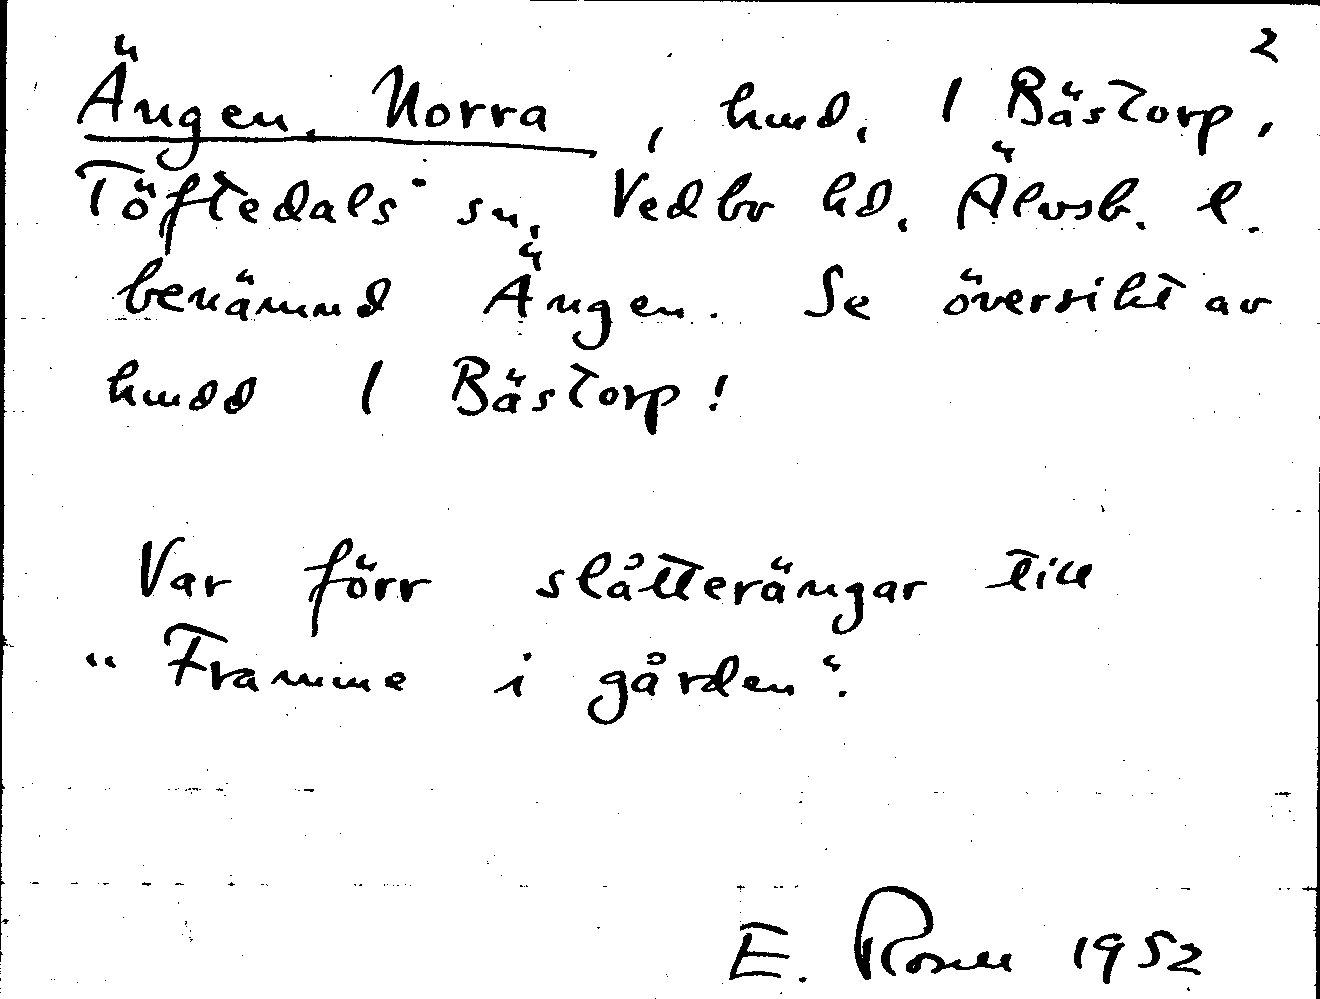 2
Ängen, Norra, hmd, 1 Bästorp,
Töftedals sn, Vedbo hd, Älvsb. l.
benämnd Ängen. Se översikt av
hmdd 1 Bästorp!
Var förr slåtterängar till
"Framme i gården".
E. Rosell 1952